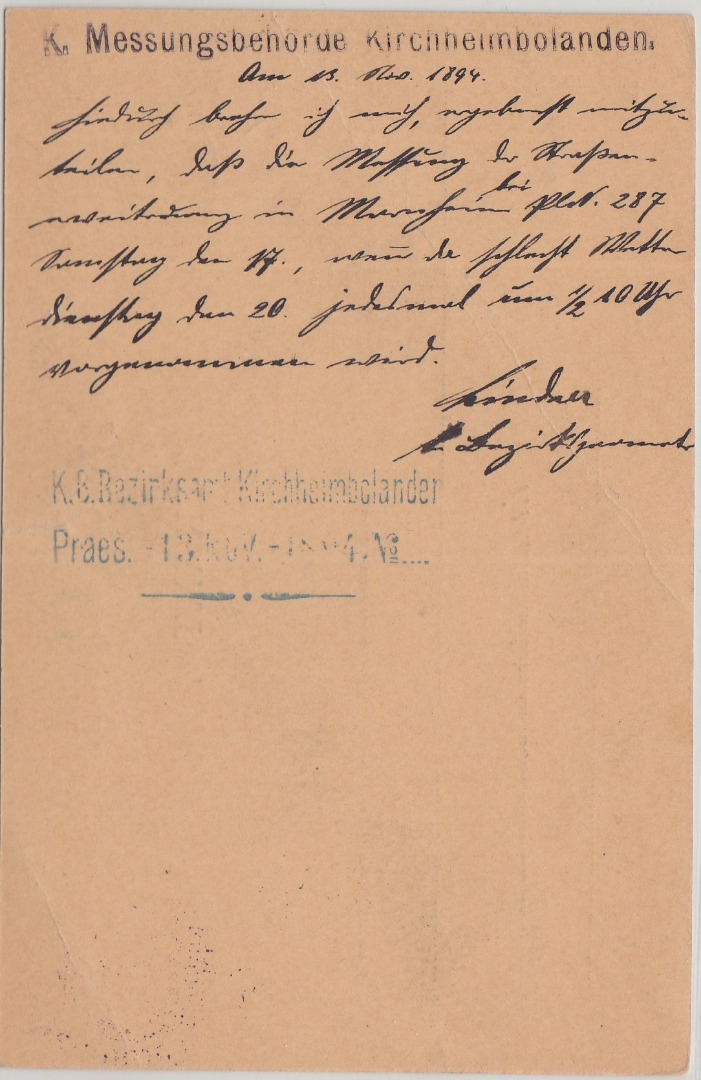 K. Messungsbehörde Kirchheimbolanden.
Am 13. Nov. 1894.
Hiedurch beehre ich mich, ergebenst mitzu-
teilen, daß die Messung der Straßen-
erweiterung in Marnheim bei Pl.N. 287
Samstag den 17., wenn da schlecht Wetter
dienstag den 20. jedesmal um 1/2 10 Uhr
vorgenommen wird.
k. Bezirksgeometer
K. B. Bezirksamt Kirchheimbolanden
Praes. -13. Nov. -1894. №....